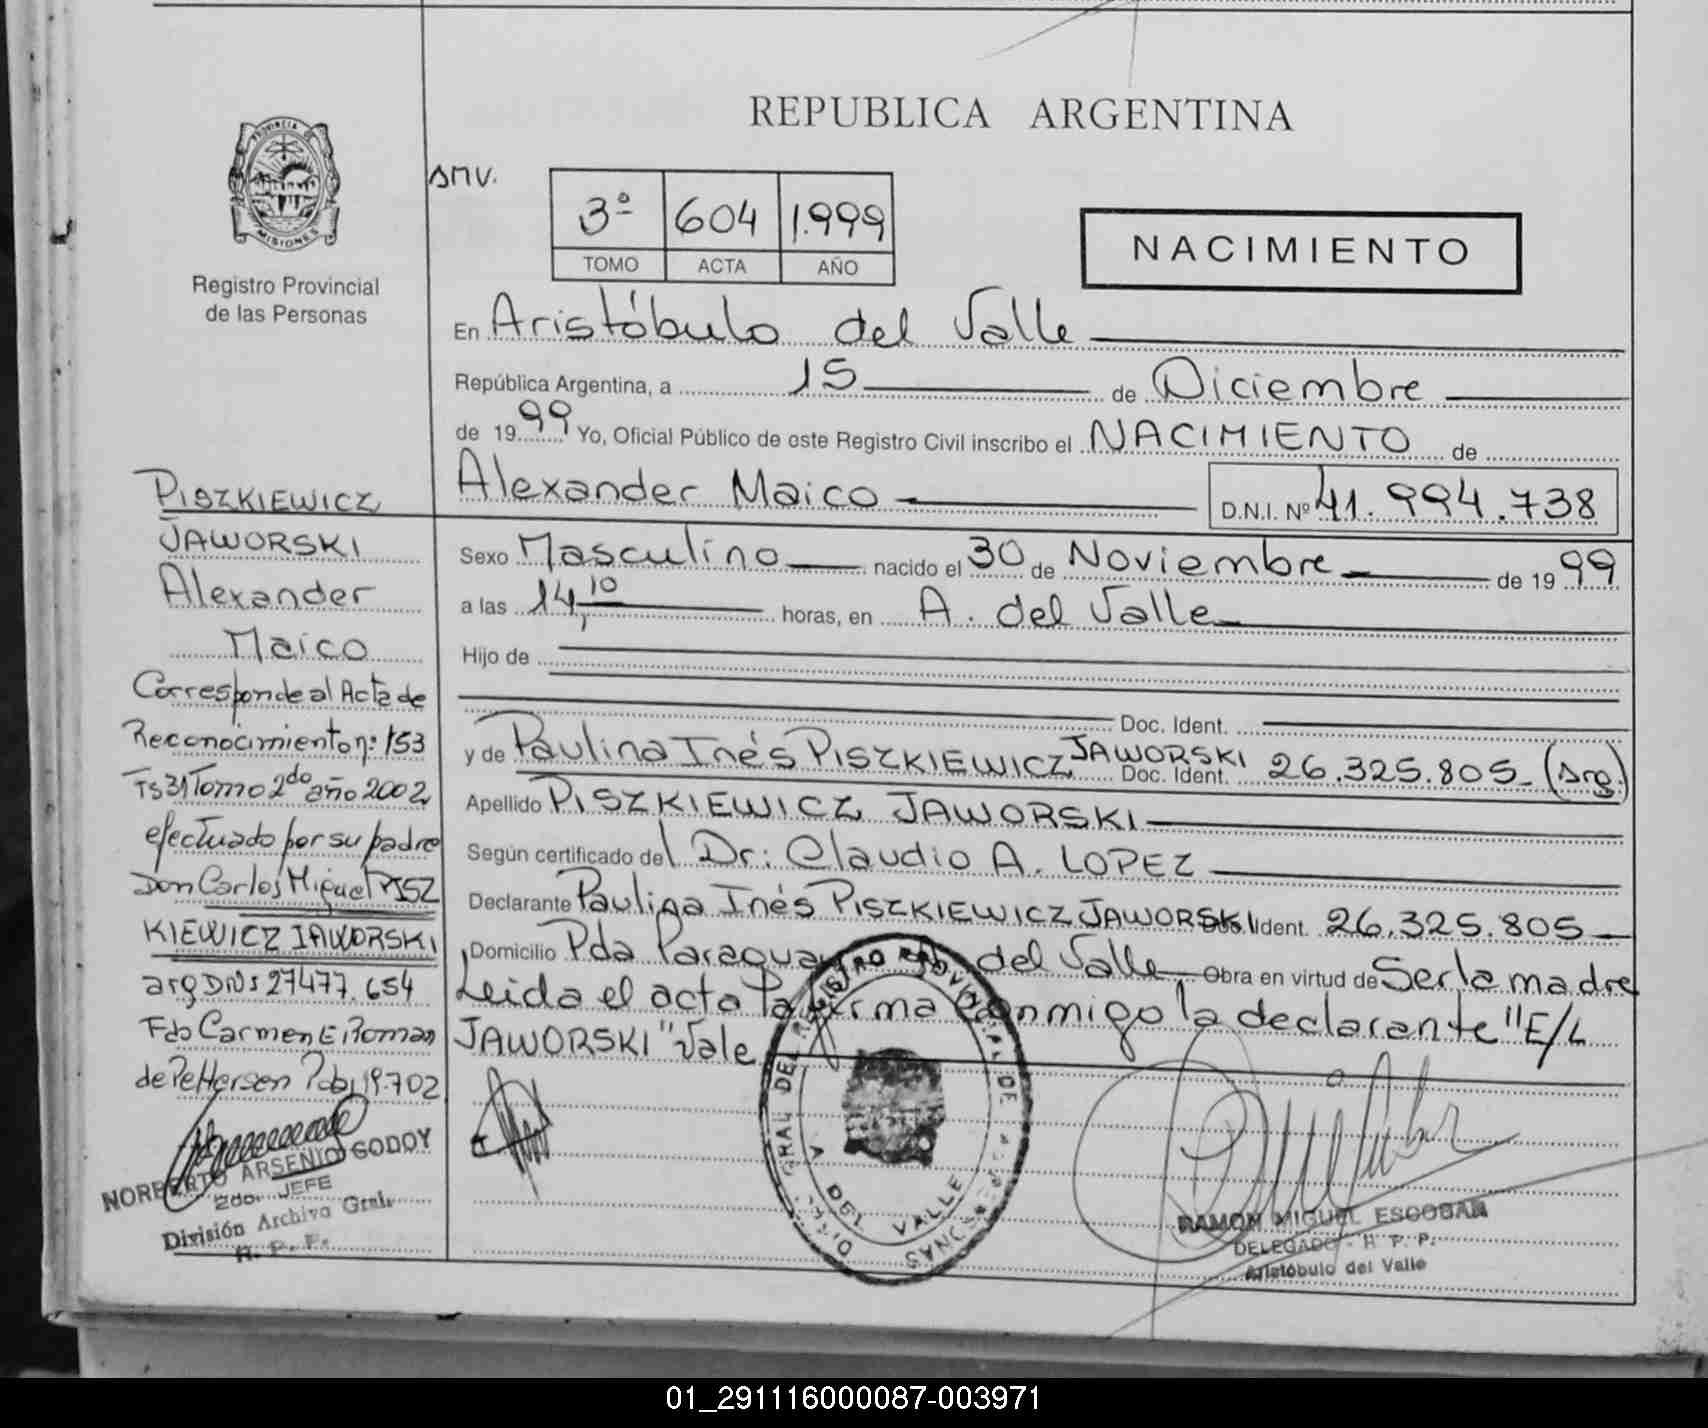 REPUBLICA ARGENTINA
PROVINCIA DE
MISIONES
Registro Provincial
de las Personas
SMV.
3º 604 1.999
TOMO ACTA AÑO
NACIMIENTO
En Aristóbulo del Valle
República Argentina, a 15 de Diciembre
de 1999 Yo, Oficial Público de este Registro Civil inscribo el NACIMIENTO de
Alexander Maico D.N.I. Nº 41.994.738
Sexo Masculino nacido el 30 de Noviembre de 1999
a las 14,10 horas, en A. del Valle
Hijo de
Doc. Ident.
y de Paulina Inés PISZKIEWICZ JAWORSKI Doc. Ident. 26.325.805 (Arg.)
Apellido PISZKIEWICZ JAWORSKI
Según certificado del Dr: Claudio A. LOPEZ
Declarante Paulina Inés PISZKIEWICZ JAWORSKI Doc. Ident. 26.325.805
Domicilio Pda Paraguay del Valle Obra en virtud de Ser la madre
Leida el acta la firma conmigo la declarante "E/L
JAWORSKI" Vale
PISZKIEWICZ
JAWORSKI
Alexander
Maico
Corresponde al Acta de
Reconocimiento nº: 153
Fs 31 Tomo 2do año 2002
efectuado por su padre
Don Carlos Miguel PISZ
KIEWICZ JAWORSKI
arg DNI 27477.654
Fdo Carmen E Roman
de Pettersen 19.702
NORBERTO ARSENIO GODOY
2do. JEFE
División Archivo Gral.
R. P. P.
A DEL VALLE
RAMON MIGUEL ESCOBAR
DELEGADO - R. P. P.
Aristóbulo del Valle
01_291116000087-003971